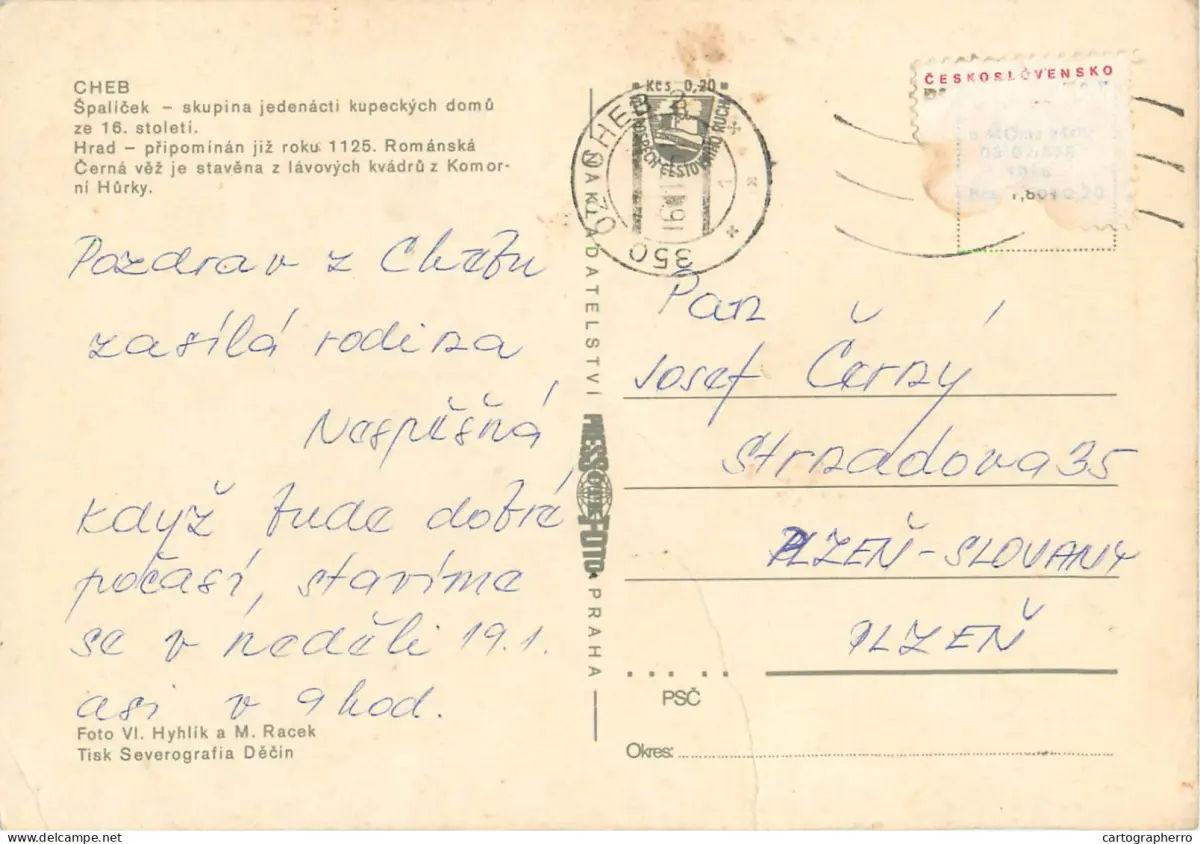 CHEB
Špalíček – skupina jedenácti kupeckých domů
ze 16. století.
Hrad – připomínán již roku 1125. Románská
Černá věž je stavěna z lávových kvádrů z Komor-
ní Hůrky.
Pozdrav z Chebu
zasílá rodina
Nespěšná
když bude dobré
počasí, stavíme
se v neděli 19.1.
asi v 9 hod.
Foto Vl. Hyhlík a M. Racek
Tisk Severografia Děčín
NAKLADATELSTVÍ
PRESSFOTO
PRAHA
Kčs 0,20
CHEB 2
350 02
ČESKOSLOVENSKO
Pan
Josef Černý
Strnadova 35
PLZEŇ-SLOVANY
PLZEŇ
PSČ
Okres:
www.delcampe.net
cartographerro